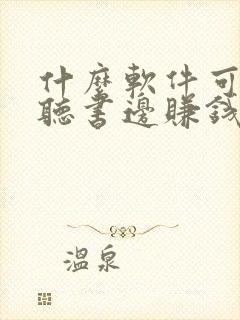 什麼軟件可
聽書邊賺錢
溫泉